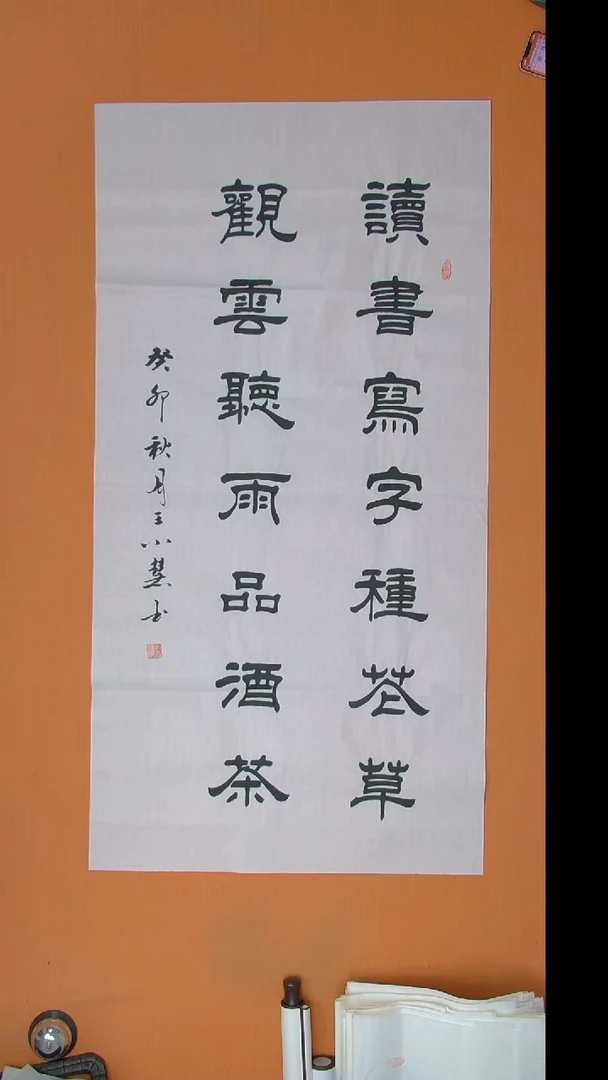 讀書寫字種花草
觀雲聽雨品酒茶
癸卯秋月王小慧书